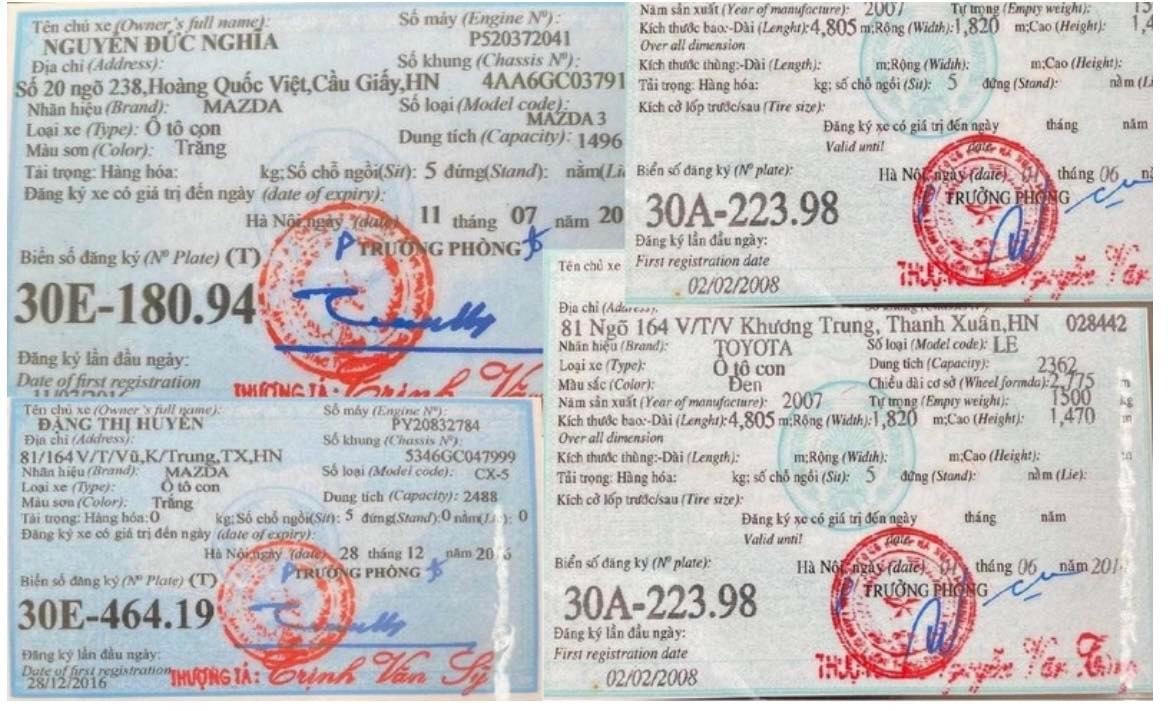 Tên chủ xe (Owner's full name):
NGUYỄN ĐỨC NGHĨA
Địa chỉ (Address):
Số máy (Engine Nº):
P520372041
Số khung (Chassis Nº):
Số 20 ngõ 238,Hoàng Quốc Việt,Cầu Giấy,HN 4AA6GC03791
Nhãn hiệu (Brand): MAZDA
Số loại (Model code):
MAZDA 3
Loại xe (Type): Ô tô con
Dung tích (Capacity): 1496
Màu sơn (Color): Trắng
Tải trọng: Hàng hóa: kg; Số chỗ ngồi(Sit): 5 đứng(Stand): nằm(Li
Đăng ký xe có giá trị đến ngày (date of expiry):
Hà Nội,ngày (date) 11 tháng 07 năm 20
TRƯỞNG PHÒNG
Biển số đăng ký (Nº Plate) (T)
30E-180.94
Đăng ký lần đầu ngày:
Date of first registration
THƯỢNG TÁ: Trịnh Vă
Năm sản xuất (Year of manufacture): 2007 Tự trọng (Empty weight): 15
Kích thước bao:-Dài (Lenght):4,805 m;Rộng (Width):1,820 m;Cao (Height): 1,4
Over all dimension
Kích thước thùng:-Dài (Length): m;Rộng (Width): m;Cao (Height):
Tải trọng: Hàng hóa: kg; số chỗ ngồi (Sit): 5 đứng (Stand): nằm (Li
Kích cỡ lốp trước/sau (Tire size):
Đăng ký xe có giá trị đến ngày tháng năm
Valid until
Biển số đăng ký (Nº plate):
Hà Nội, ngày (date) 01 tháng 06 nă
TRƯỞNG PHÒNG
30A-223.98
Đăng ký lần đầu ngày:
First registration date
02/02/2008
THƯỢNG Nguyễn Văn
Tên chủ xe (Owner's full name):
ĐẶNG THỊ HUYỀN
Địa chỉ (Address):
Số máy (Engine Nº):
PY20832784
Số khung (Chassis Nº):
81/164 V/T/Vũ,K/Trung,TX,HN 5346GC047999
Nhãn hiệu (Brand): MAZDA
Số loại (Model code): CX-5
Loại xe (Type): Ô tô con
Màu sơn (Color): Trắng
Dung tích (Capacity): 2488
Tải trọng: Hàng hóa:0 kg; Số chỗ ngồi(Sit): 5 đứng(Stand):0 nằm(Lie): 0
Đăng ký xe có giá trị đến ngày (date of expiry):
Hà Nội,ngày (date) 28 tháng 12 năm 2016
TRƯỞNG PHÒNG
Biển số đăng ký (Nº Plate) (T)
30E-464.19
Đăng ký lần đầu ngày:
Date of first registration
28/12/2016
THƯỢNG TÁ: Trịnh Văn Sỹ
Tên chủ xe
Địa chỉ (Address):
81 Ngõ 164 V/T/V Khương Trung, Thanh Xuân,HN 028442
Nhãn hiệu (Brand): TOYOTA
Số loại (Model code): LE
Loại xe (Type): Ô tô con
Dung tích (Capacity): 2362
Màu sắc (Color): Đen
Chiều dài cơ sở (Wheel formda):2,775 m
Năm sản xuất (Year of manufacture): 2007 Tự trọng (Empty weight): 1500 kg
Kích thước bao:-Dài (Lenght):4,805 m;Rộng (Width):1,820 m;Cao (Height): 1,470 m
Over all dimension
Kích thước thùng:-Dài (Length): m;Rộng (Width): m;Cao (Height):
Tải trọng: Hàng hóa: kg; số chỗ ngồi (Sit): 5 đứng (Stand): nằm (Lie):
Kích cỡ lốp trước/sau (Tire size):
Đăng ký xe có giá trị đến ngày tháng năm
Valid until
Biển số đăng ký (Nº plate):
Hà Nội, ngày (date) 01 tháng 06 năm 201
TRƯỞNG PHÒNG
30A-223.98
Đăng ký lần đầu ngày:
First registration date
02/02/2008
THƯỢNG Nguyễn Văn